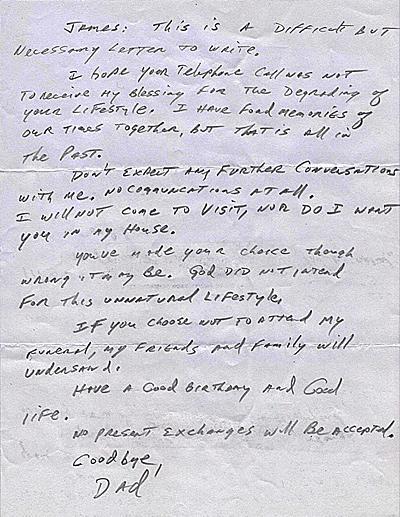 James: This is a Difficult but
Necessary Letter to write.
I hope your Telephone Call was not
to receive my Blessing for the Degrading of
your Lifestyle. I have fond memories of
our times together, but that is all in
the Past.
Don't expect any further conversations
with me. No communications at all.
I will not come to visit, nor do I want
you in my house.
You've made your choice though
wrong it may be. God did not intend
for this unnatural Lifestyle.
If you choose not to attend my
funeral, my friends and family will
understand.
Have a good birthday and good
life.
No present exchanges will be accepted.
Goodbye,
Dad